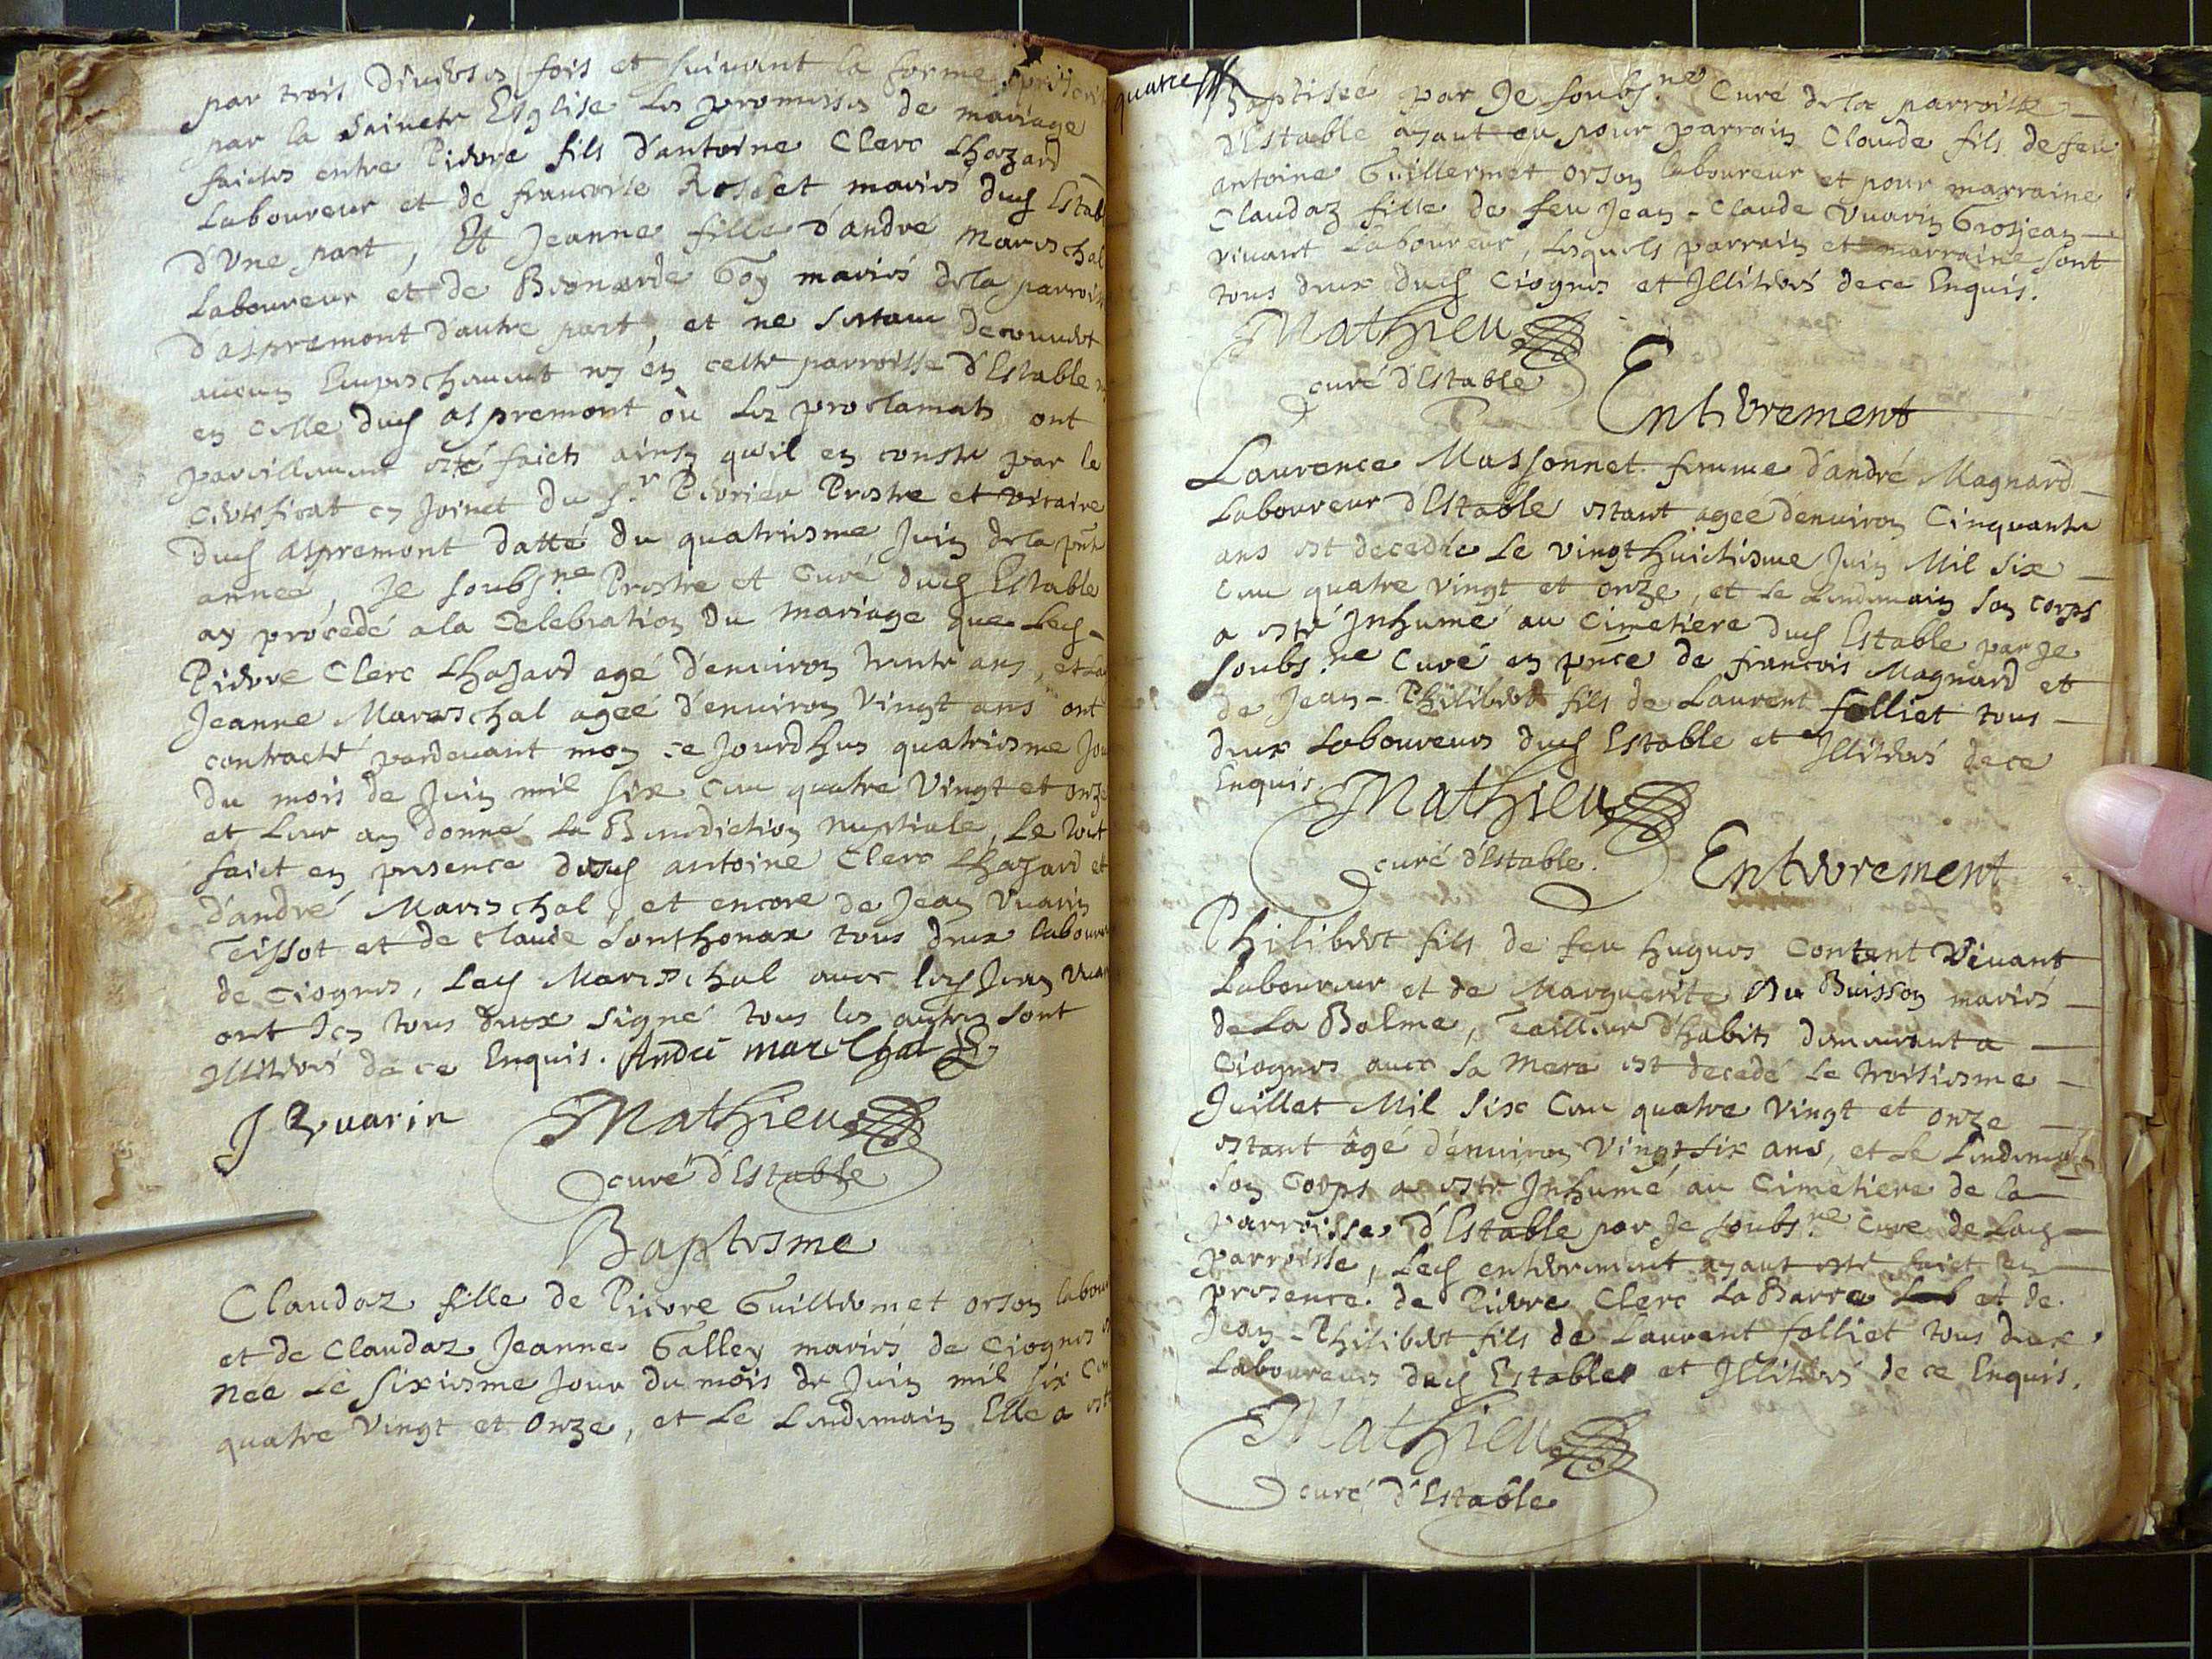 par trois diverses fois et suivant la forme
par la saincte Esglise les promesses de mariage
faictes entre Pierre fils d'antoine Clerc Lhazard
Laboureur et de francoise Rosset mariés dud Estab
d'Une part, Et Jeanne fille d'andre Mareschal
Laboureur et de Bernarde Goy mariés de la parroisse
d'aspremont d'autre part, et ne s'estant decouvert
aucun Empeschement ny en cette parroisse d'Estable
en celle dud aspremont où les proclamats ont
pareillement esté faicts ainsy qu'il en conste par le
certificat cy joinct du sr Perrier Prestre et vicaire
dud aspremont datté du quatriesme Juin de la pnte
année, Je soubs.ne Prestre et Curé dud Estable
ay procédé a la celebration du mariage que Led
Pierre Clerc Lhazard agé d'environ trente ans, et La
Jeanne Mareschal ageé d'environ vingt ans ont
contracté pardevant moy ce Jourdhuy quatriesme Jou
du mois de Juin mil six cen quatre Vingt et onze
et Leur ay donné la Benediction nuptiale, Le tout
faict en presence desd antoine Clerc Lhazard et
d'andré Mareschal, et encore de Jean Vuarin
Tissot et de claude Sonthonax tous deux laboureu
de Ciognes, Led Mareschal avec led Jean Vua
ont Icy tous deux signé tous les autres sont
Illiterés de ce Enquis. André mareschal
J Vuarin Mathieu
curé d'Estable
Baptesme
Claudaz fille de Pierre Guillermet orson labour
et de Claudaz Jeanne Galley mariés de Ciognes
née Le sixiesme Jour du mois de Juin mil six Cen
quatre Vingt et Onze, et Le Lendemain Elle a esté
quatre
Baptisée par Je soubs.né Curé de la parroisse
d'Estable ayant eu pour parrain Claude fils de feu
antoine Guillermet orson laboureur et pour marraine
Claudaz fille de feu Jean-Claude Vuarin Grosjean
vivant Laboureur, lesquels parrain et marraine sont
tous deux dud Ciognes et Illiterés de ce Enquis.
Mathieu
curé d'Estable
Enterrement
Laurence Massonnet femme d'andré Magnard
Laboureur d'Estable estant agee d'environ Cinquante
ans est decedée Le vingt huictiesme Juin Mil six
cen quatre vingt et onze, et Le Lendemain son corps
a esté Inhumé au Cimetiere dud Estable par Je
soubs.ne Curé en pnce de francois Magnard et
de Jean-Philibert fils de Laurent folliet tous
deux Laboureurs dud Estable et Illiterés de ce
Enquis Mathieu
curé d'Estable.
Enterrement
Philibert fils de feu hugues Content Vivant
Laboureur et de Marguerite Du Buisson mariés
de La Balme, Tailleur d'habits demeurant a
Ciognes avec sa Mere est decedé Le troisiesme
Juillet Mil Six Cen quatre Vingt et onze
estant âgé d'environ Vingt six ans, et Le Lendemain
son Corps a esté Inhumé au Cimetiere de la
parroisse d'Estable par Je soubs.ne Curé de Lad
parroisse, Led enterrement ayant esté faict en
presence de Pierre Clerc La Barre et de
Jean-Philibert fils de Laurent folliet tous deux
Laboureurs dud Estable et Illiterés de ce Enquis.
Mathieu
curé d'Estable